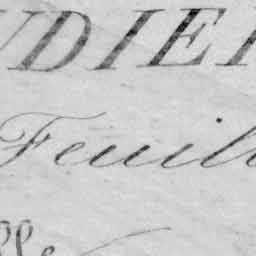 UDIER
Feuill
lle